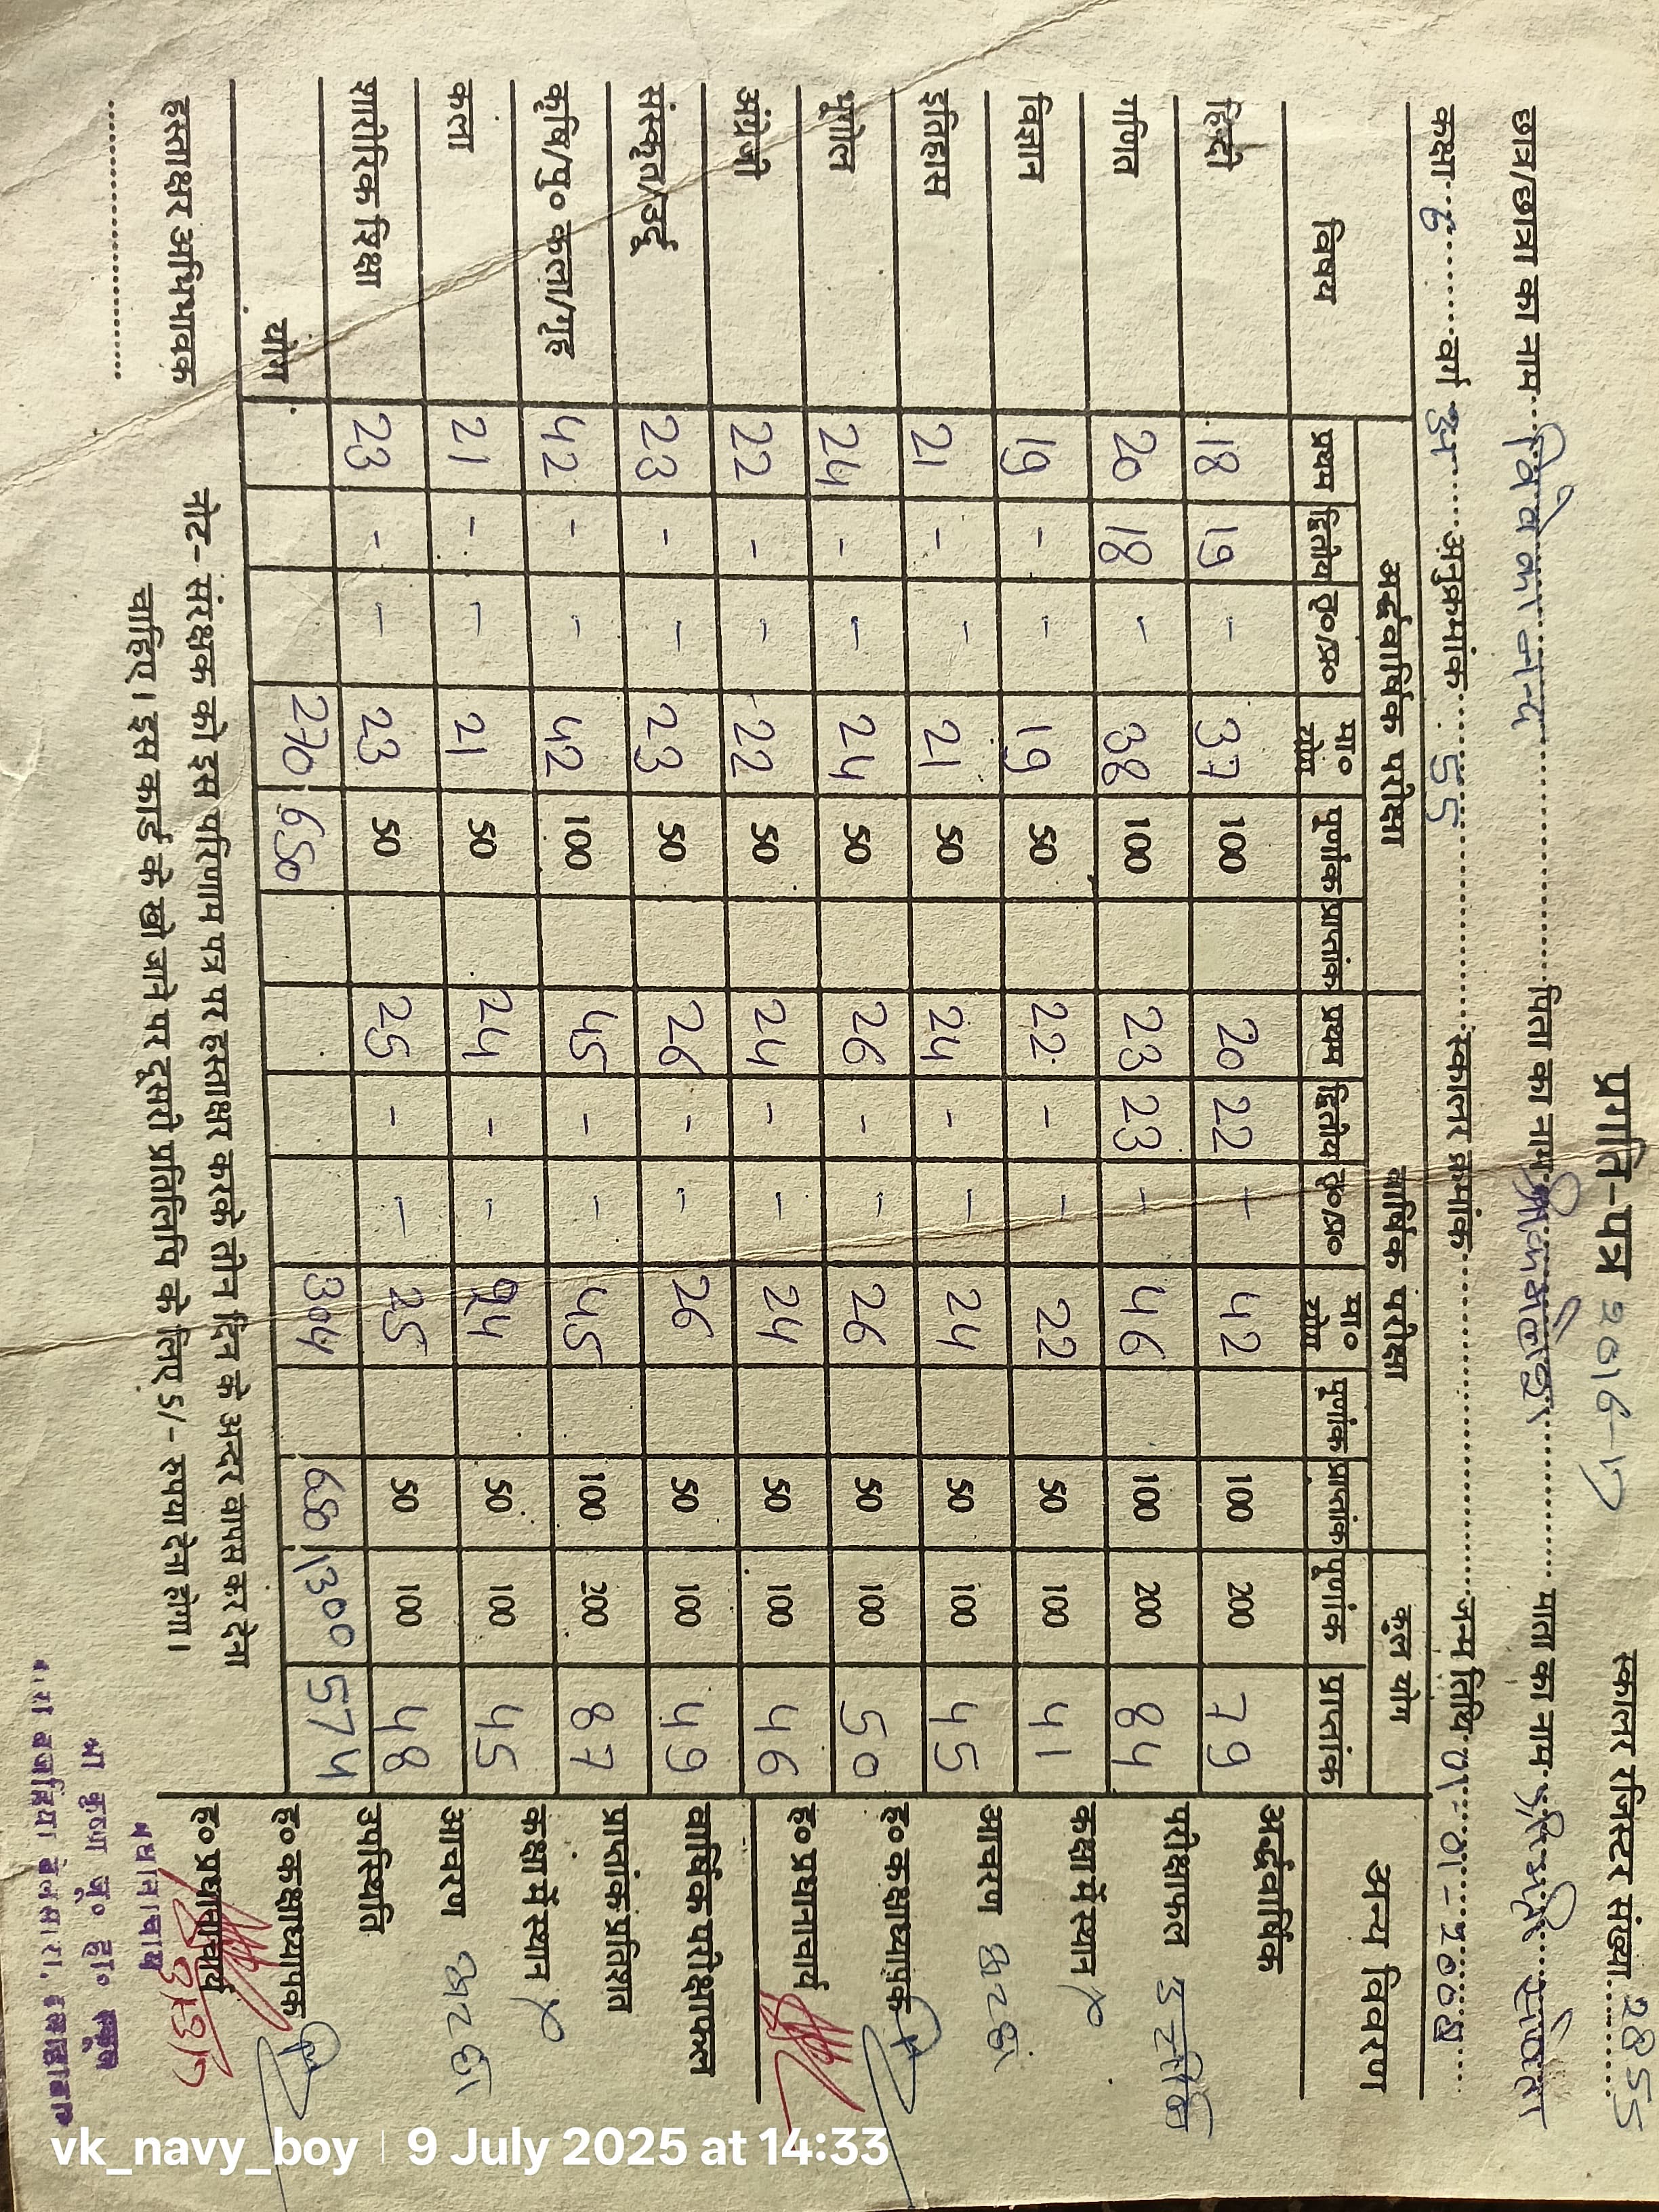 स्कालर रजिस्टर संख्या 2855
प्रगति-पत्र 2016-17
छात्र/छात्रा का नाम विवेकानन्द पिता का नाम माता का नाम
कक्षा 6 वर्ग अनुक्रमांक 55 स्कालर क्रमांक जन्म तिथि
विषय अर्द्धवार्षिक परीक्षा वार्षिक परीक्षा कुल योग अन्य विवरण
प्रथम द्वितीय ए०/प्र० मा० योग पूर्णांक प्राप्तांक प्रथम द्वितीय ए०/प्र० मा० योग पूर्णांक प्राप्तांक पूर्णांक प्राप्तांक
हिन्दी 18 19 - 37 100 20 22 - 42 100 200 79
गणित 20 18 - 38 100 23 23 - 46 100 200 84
विज्ञान 19 - - 19 50 22 - - 22 50 100 41
इतिहास 21 - - 21 50 24 - - 24 50 100 45
भूगोल 24 - - 24 50 26 - - 26 50 100 50
अंग्रेजी 22 - - 22 50 24 - - 24 50 100 46
संस्कृत/उर्दू 23 - - 23 50 26 - - 26 50 100 49
कृषि/पु० कला/गृह 42 - - 42 100 45 - - 45 100 200 87
कला 21 - - 21 50 24 - - 24 50 100 45
शारीरिक शिक्षा 23 - - 23 50 25 - - 25 50 100 48
योग 270 650 304 650 1300 574
अर्द्धवार्षिक
परीक्षाफल उत्तीर्ण
कक्षा में स्थान
आचरण अच्छा
ह० कक्षाध्यापक
ह० प्रधानाचार्य
वार्षिक परीक्षाफल
प्राप्तांक प्रतिशत
कक्षा में स्थान
आचरण अच्छा
उपस्थिति
ह० कक्षाध्यापक
ह० प्रधानाचार्य
हस्ताक्षर अभिभावक
नोट- संरक्षक को इस परिणाम पत्र पर हस्ताक्षर करके तीन दिन के अन्दर वापस कर देना
चाहिए। इस कार्ड के खो जाने पर दूसरी प्रतिलिपि के लिए 5/- रुपया देना होगा।
प्रधानाचार्य
श्री कृष्ण जू० हा० स्कूल
vk_navy_boy | 9 July 2025 at 14:33